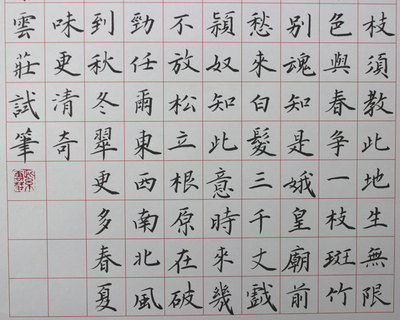 枝須教此地生無限
色與春爭一枝斑竹
別魂知是娥皇廟前
愁來白髮三千丈戲
穎奴知此意時來幾
不放松立根原在破
勁任爾東西南北風
到秋冬翠更多春夏
味更清奇
雲莊試筆